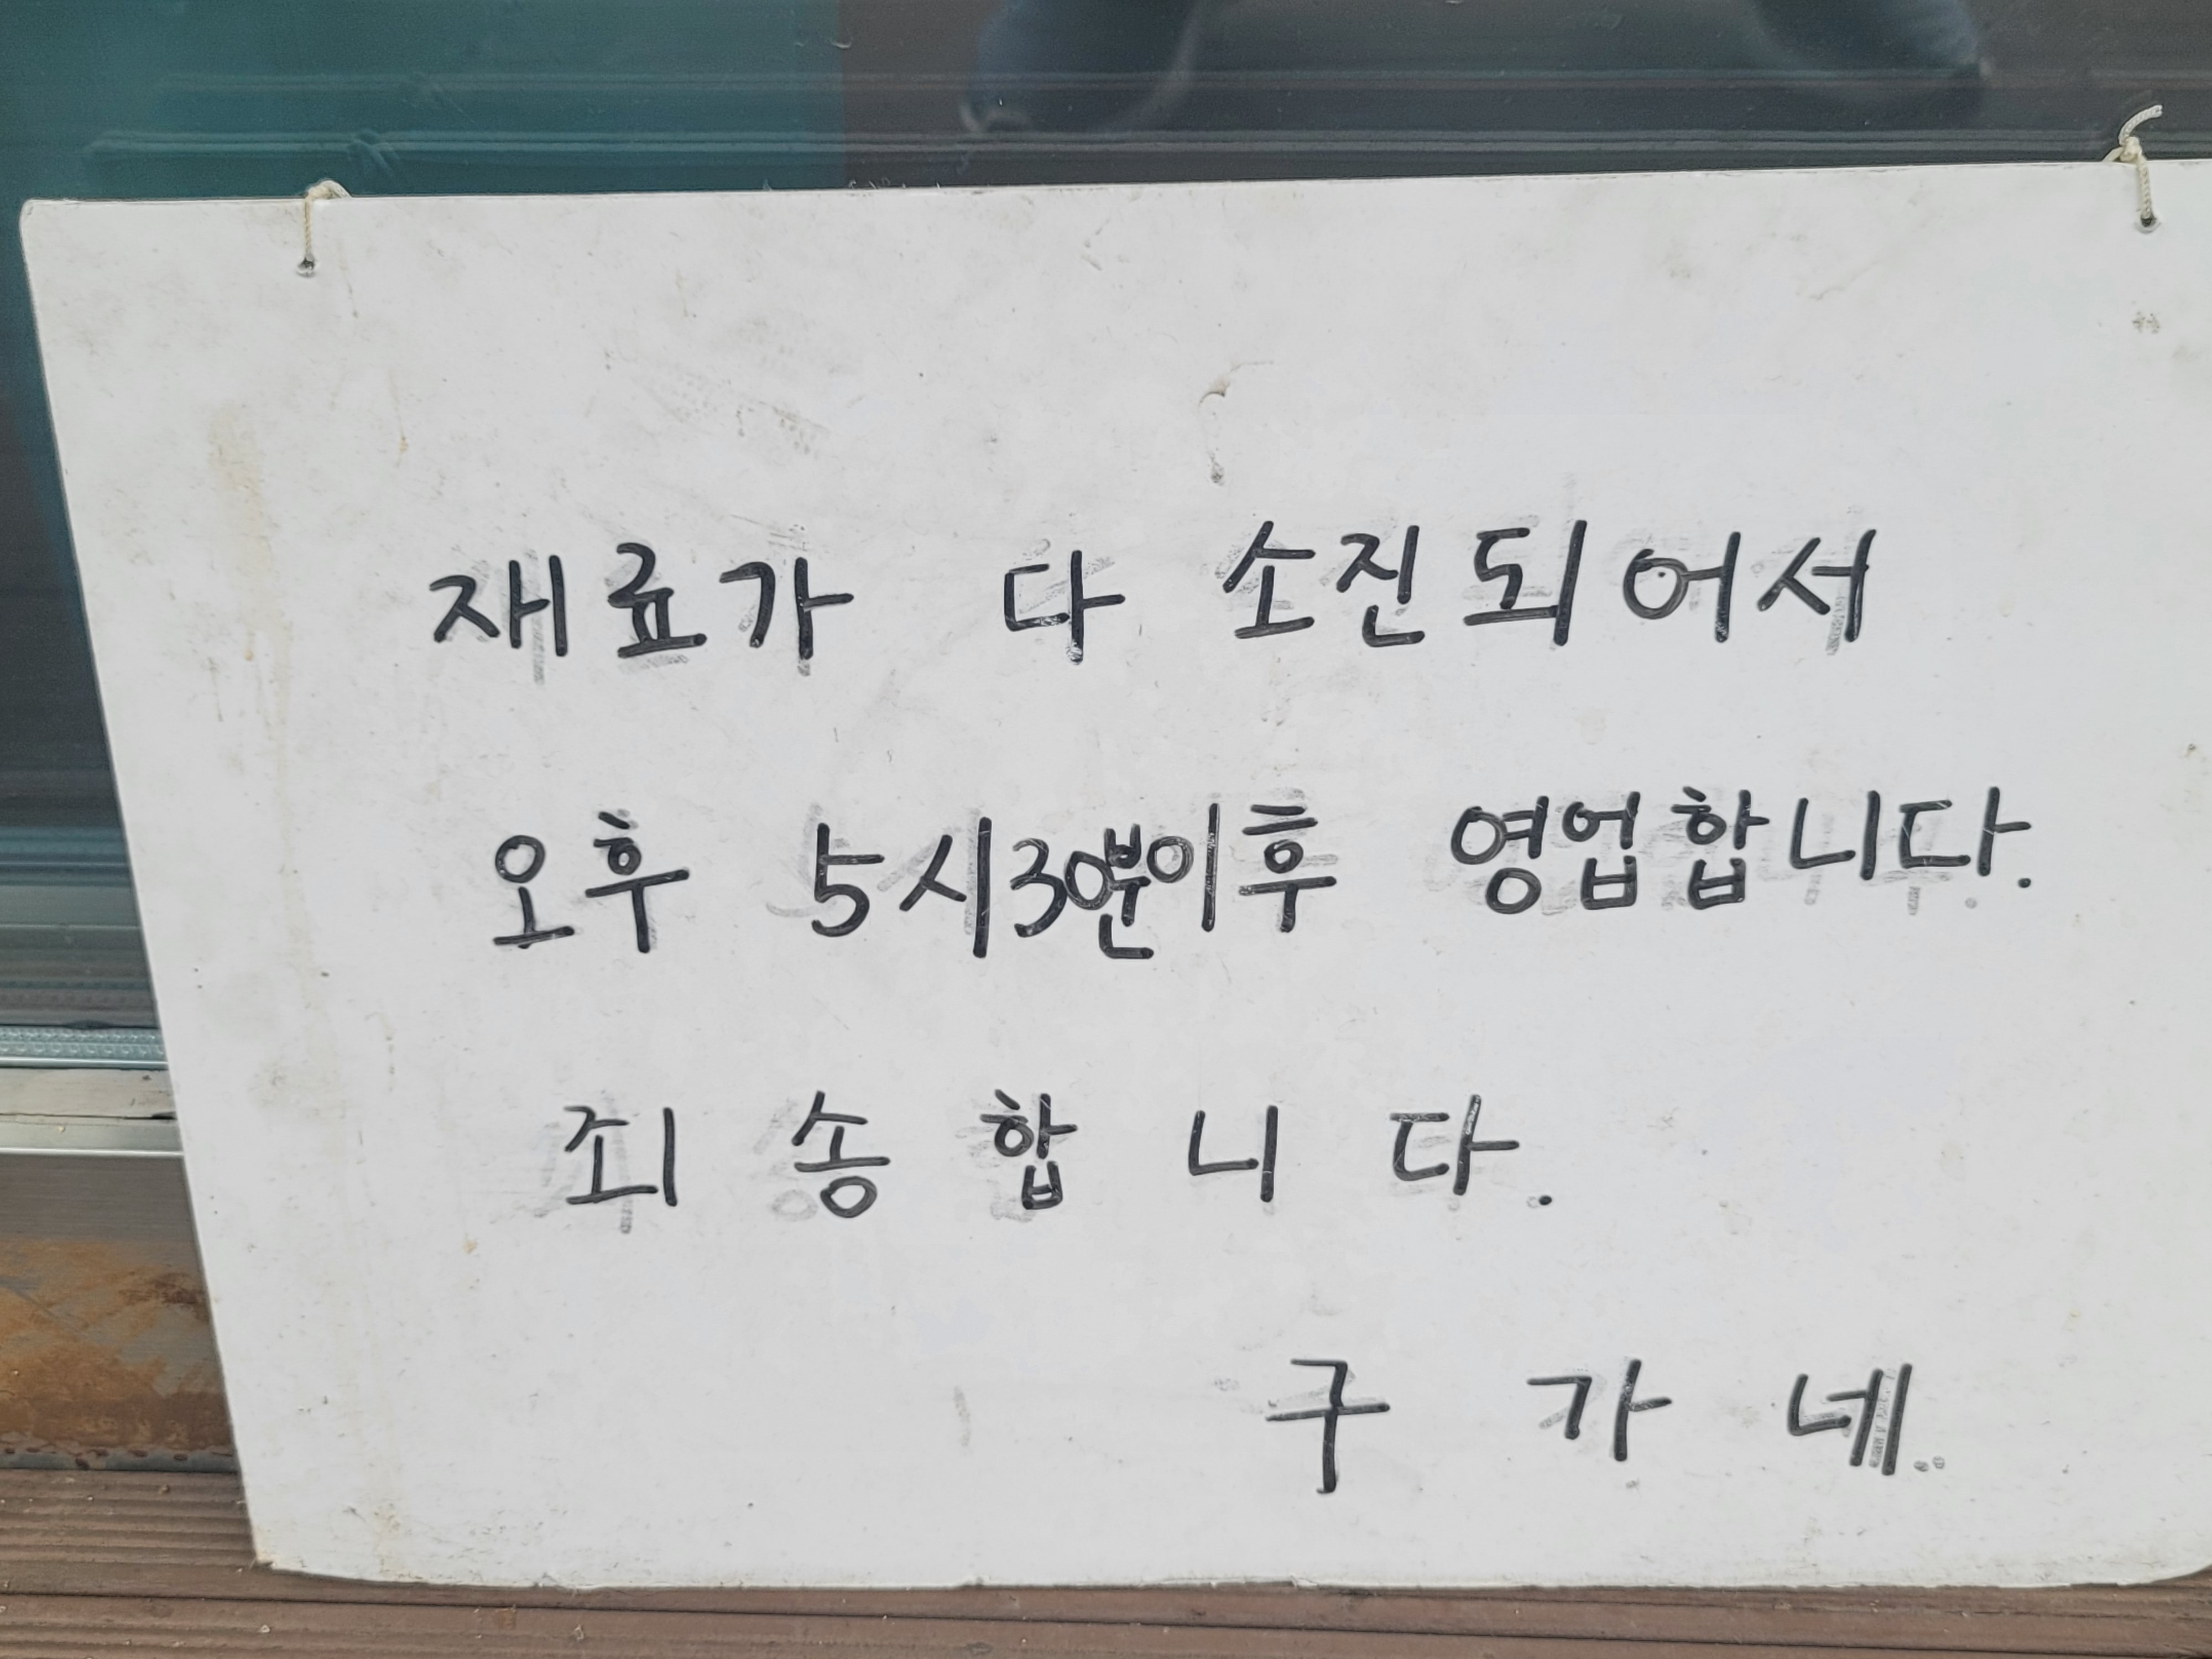 재료가 다 소진되어서
오후 5시30분이후 영업합니다.
죄송합니다.
구가네